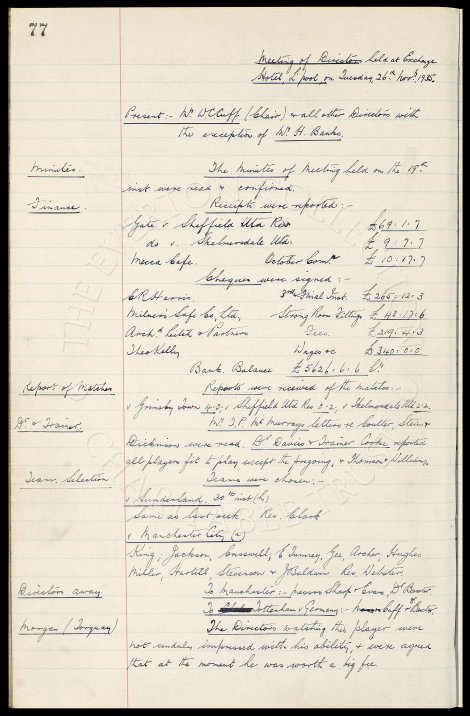 77
Meeting of Directors held at Exchange
Hotel, L'pool, on Tuesday, 26th Novr, 1935.
Present:- Mr W.C. Cuff (Chair) & all other Directors with
the exception of Mr H. Banks.
Minutes. The Minutes of Meeting held on the 19th
inst were read & confirmed.
Finance. Receipts were reported:-
Gate v. Sheffield Utd Res £69.1.7
do v. Skelmersdale Utd. £9.7.7
Mecca Cafe. October Comn £10.17.7
Cheques were signed:-
C R Harris, 3rd & Final Inst. £265.12.3
Milners Safe Co, Ltd, Strong Room Fittings £43.17.6
Archd Leitch & Partners Fees. £219.4.3
Theo Kelly Wages &c £340.0.0
Bank Balance £5626.6.6 Cr
Report of Matches Reports were received of the matches:-
v Grimsby Town 4-0, v Sheffield Utd Res 0-2, v Skelmersdale Utd 2-2.
Dr & Trainer. Mr. J.P. McMurrays letters re Coulter, Stein &
Dickinson were read. Dr Davies & Trainer Cooke, reported
all players fit to play except the forgoing, & Thomson & Williams.
Team Selection Teams were chosen:-
v Sunderland 30th inst (h)
Same as last week. Res. Clark
v Manchester City (a)
King; Jackson, Cresswell, C Tunney, Gee, Archer, Hughes
Miller, Hartill, Stevenson & J Baldwin Res. Webster.
Directors away To Manchester:- Messrs Sharp & Evans, Dr Baxter.
To Tottenham v Germany:- Cuff & Dr Baxter
Morgan (Torquay) The Directors watching this player were
not unduly impressed with his ability, & were agreed
that at the moment he was worth a big fee.
THE EVERTON COLLECTION CHARITABLE TRUST